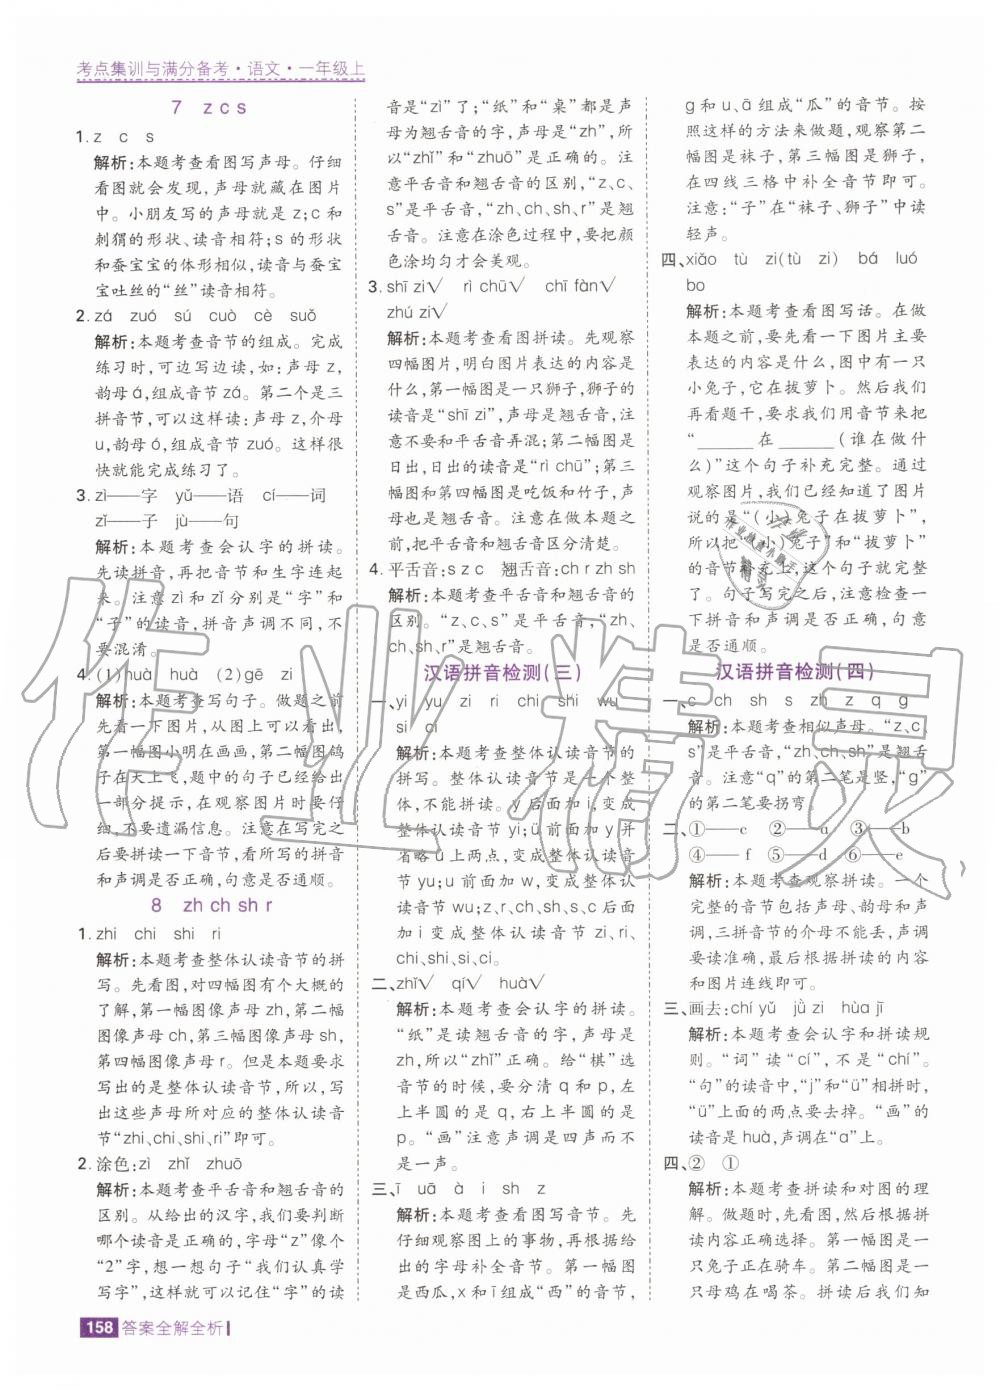 考点集训与满分备考·语文·一年级上
7 z c s
1. z c s
解析:本题考查看图写声母。仔细
看图就会发现,声母就藏在图片
中。小朋友写的声母就是 z;c 和
刺猬的形状、读音相符;s 的形状
和蚕宝宝的体形相似,读音与蚕宝
宝吐丝的“丝”读音相符。
2. zá zuó sú cuò cè suǒ
解析:本题考查音节的组成。完成
练习时,可边写边读,如:声母 z,
韵母 á,组成音节 zá。第二个是三
拼音节,可以这样读:声母 z,介母
u,韵母 ó,组成音节 zuó。这样很
快就能完成练习了。
3. zì——字 yǔ——语 cí——词
zǐ——子 jù——句
解析:本题考查会认字的拼读。
先读拼音,再把音节和生字连起
来。注意 zì 和 zǐ 分别是“字”和
“子”的读音,拼音声调不同,不
要混淆。
4. (1)huà huà (2)gē zi
解析:本题考查写句子。做题之前
先看一下图片,从图上可以看出,
第一幅图小明在画画,第二幅图鸽
子在天上飞,题中的句子已经给出
一部分提示,在观察图片时要仔
细,不要遗漏信息。注意在写完之
后要拼读一下音节,看所写的拼音
和声调是否正确,句意是否通顺。
8 zh ch sh r
1. zhi chi shi ri
解析:本题考查整体认读音节的拼
写。先看图,对四幅图有个大概的
了解,第一幅图像声母 zh,第二幅
图像声母 ch,第三幅图像声母 sh,
第四幅图像声母 r。但是本题要求
写出的是整体认读音节,所以,写
出这些声母所对应的整体认读音
节“zhi、chi、shi、ri”即可。
2. 涂色:zì zhǐ zhuō
解析:本题考查平舌音和翘舌音的
区别。从给出的汉字,我们要判断
哪个读音是正确的,字母“z”像个
“2”字,想一想句子“我们认真学
写字”,这样就可以记住“字”的读
音是“zì”了;“纸”和“桌”都是声
母为翘舌音的字,声母是“zh”,所
以“zhǐ”和“zhuō”是正确的。注
意平舌音和翘舌音的区别,“z、c、
s”是平舌音,“zh、ch、sh、r”是翘
舌音。注意在涂色过程中,要把颜
色涂均匀才会美观。
3. shī zi√ rì chū√ chī fàn√
zhú zi√
解析:本题考查看图拼读。先观察
四幅图片,明白图片表达的内容是
什么,第一幅图是一只狮子,狮子的
读音是“shī zi”,声母是翘舌音,注
意不要和平舌音弄混;第二幅图是
日出,日出的读音是“rì chū”;第三
幅图和第四幅图是吃饭和竹子,声
母也是翘舌音。注意在做本题之
前,把翘舌音和平舌音区分清楚。
4. 平舌音:s z c 翘舌音:ch r zh sh
解析:本题考查平舌音和翘舌音的
区别。“z、c、s”是平舌音,“zh、
ch、sh、r”是翘舌音。
汉语拼音检测(三)
一、yi yu zi ri chi shi wu
si ci
解析:本题考查整体认读音节的
拼写。整体认读音节是一个整
体,不能拼读。y 后面加 i,变成
整体认读音节 yi;ü 前面加 y 并
省略 ü 上两点,变成整体认读音
节 yu;u 前面加 w,变成整体认
读音节 wu;z、r、ch、sh、s、c 后面
加 i 变成整体认读音节 zi、ri、
chi、shi、si、ci。
二、zhǐ√ qí√ huà√
解析:本题考查会认字的拼读。
“纸”是读翘舌音的字,声母是
zh,所以“zhǐ”正确。给“棋”选
音节的时候,要分清 q 和 p,左
上半圆的是 q,右上半圆的是
p。“画”注意声调是四声而不
是一声。
三、ī uā à i sh z
解析:本题考查看图写音节。先
仔细观察图上的事物,再根据给
出的字母补全音节。第一幅图
是西瓜,x 和 ī 组成“西”的音节,
g 和 u、ā 组成“瓜”的音节。按
照这样的方法来做题,观察第二
幅图是袜子,第三幅图是狮子,
在四线三格中补全音节即可。
注意:“子”在“袜子、狮子”中读
轻声。
四、xiǎo tù zi(tù zi) bá luó
bo
解析:本题考查看图写话。在做
本题之前,要先看一下图片主要
表达的内容是什么,图中有一只
小兔子,它在拔萝卜。然后我们
再看题干,要求我们用音节来把
“______在______(谁在做什
么)”这个句子补充完整。通过
观察图片,我们已经知道了图片
说的是“(小)兔子在拔萝卜”,
所以把“(小)兔子”和“拔萝卜”
的音节补充上,这样句子就完整
了。句子写完之后,注意检查一
下拼音和声调是否正确,句意
是否通顺。
汉语拼音检测(四)
一、c ch sh s zh z q g
解析:本题考查相似声母。“z、c、
s”是平舌音,“zh、ch、sh”是翘舌
音。注意“q”的第二笔是竖,“g”
的第二笔要拐弯。
二、①——c ②——a ③——b
④——f ⑤——d ⑥——e
解析:本题考查观察拼读。一个
完整的音节包括声母、韵母和声
调,三拼音节的介母不能丢,声调
要读准确,最后根据拼读的内容
和图片连线即可。
三、画去:chí yǔ jǜ zi hùa jī
解析:本题考查会认字和拼读规
则。“词”读“cí”,不是“chí”。
“句”的读音中,“j”和“ü”相拼时,
“ü”上面的两点要去掉。“画”的
读音是 huà,声调在“a”上。
四、② ①
解析:本题考查拼读和对图的理
解。做题时,先看图,然后根据拼
读内容正确选择。第一幅图是一
只兔子正在骑车。第二幅图是一
只母鸡在喝茶。拼读后我们知
158 答案全解全析
作业精灵